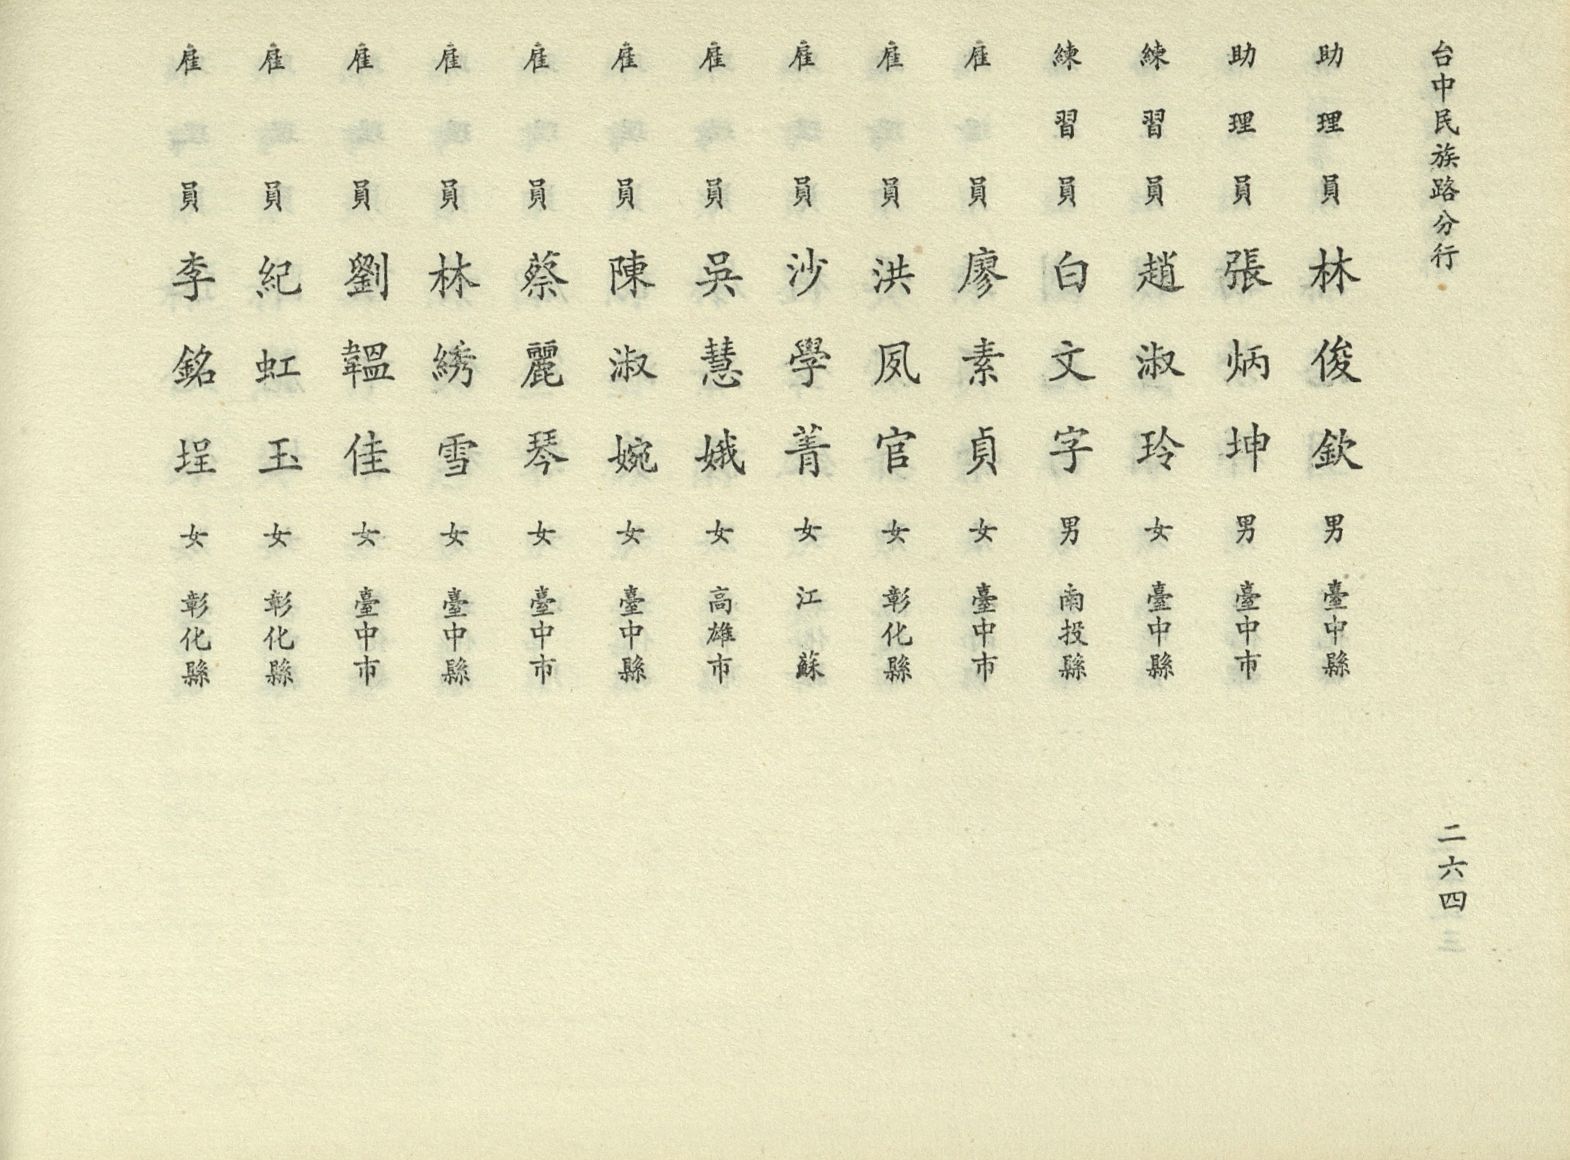 台中民族路分行
二六四
助理員林俊欽男臺中縣
助理員張炳坤男臺中市
練習員趙淑玲女臺中縣
練習員白文字男南投縣
雇員廖素貞女臺中市
雇員洪夙官女彰化縣
雇員沙學菁女江蘇
雇員吳慧娥女高雄市
雇員陳淑婉女臺中縣
雇員蔡麗琴女臺中市
雇員林綉雪女臺中縣
雇員劉韞佳女臺中市
雇員紀虹玉女彰化縣
雇員李銘埕女彰化縣